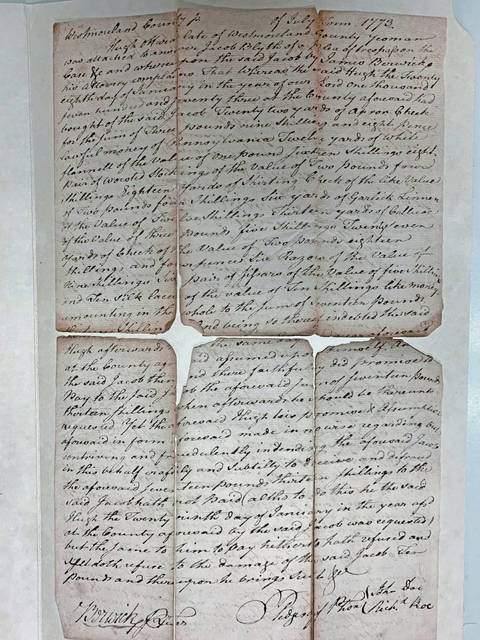 Westmorland County ss of July Term 1773.
Hugh late of Westmorland County Yeoman
was attached to answer Jacob Blyth of a Plea of trespass on the
Case &c and whereupon the said Jacob by James Berwick
his Attorney complains That Whereas the said Hugh the Twenty
eighth day of January in the year of our Lord one thousand
seven hundred and Seventy three at the County aforesaid had
bought of the said Jacob Twenty two yards of Apron Check
for the sum of Three pounds nine Shillings and eight pence
lawful money of Pennsylvania Twelve yards of White
flannell of the Value of one pound Sixteen Shillings eight
Pair of Worsted Stockings of the Value of Two pounds four
Shillings Eighteen Yards of Shirting Check of the like Value
of Two pounds four Shillings Six yards of Garlick Linnen
of the Value of Twelve Shillings Thirteen yards of Callicoe
of the Value of three pounds five Shillings Twenty seven
Yards of Check of the Value of Two pounds eighteen
Shillings and pence Six Razors of the Value of
Nine Shillings pair of of the Value of five Shillings
and Ten Silk laces of the value of Ten Shillings like money
amounting in the whole to the sum of Seventeen pounds
and being so thereof indebted the said
Hugh afterwards the same
at the County assumed upon
the said Jacob then and there faithfully did promise to
Pay to the said Jacob the aforesaid of Seventeen pounds
thirteen Shillings when afterwards he should be thereunto
requested Yet the aforesaid Hugh his promise & Assumption
aforesaid in form aforesaid made in no wise regarding but
contriving and fraudulently intending the aforesaid Jacob
in this behalf craftily and Subtilly to deceive and defraud
the aforesaid Seventeen pounds thirteen shillings to the
said Jacob hath not Paid (altho to do this he the said
Hugh the Twenty ninth day of January in the year afsd
at the County aforesaid by the said Jacob was requested)
but the same to him to Pay hitherto hath refused and
Yet doth refuse to the damage of the said Jacob Ten
pounds and thereupon he brings Suit &c
Berwick Pledges John Doe
Richd Roe